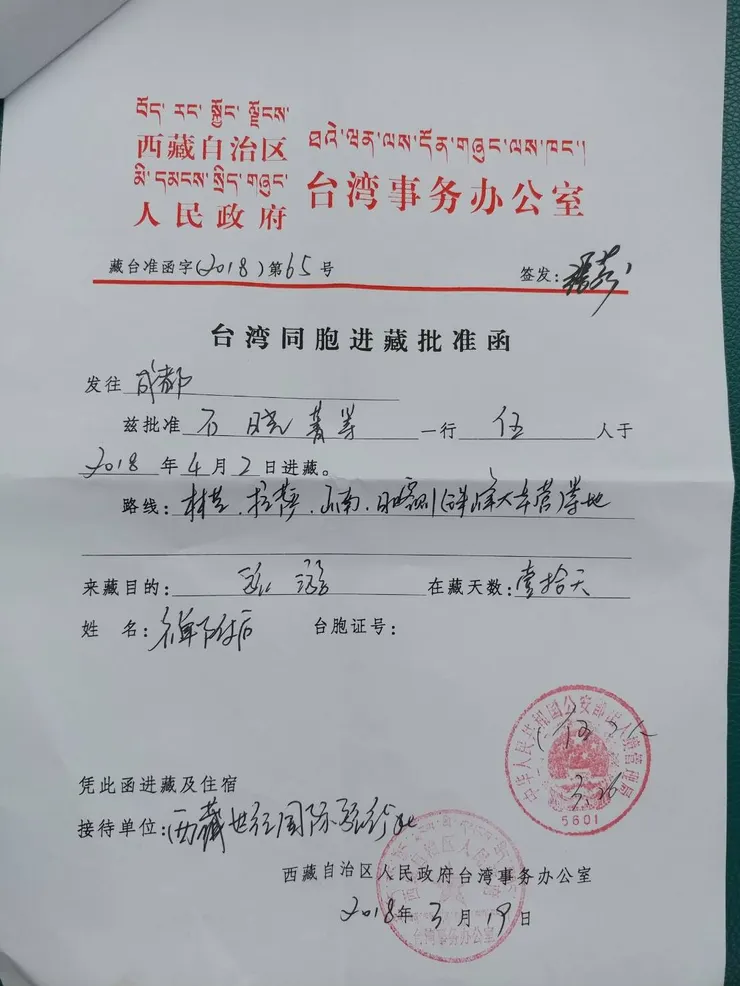 བོད་ རང་ སྐྱོང་ ལྗོངས་
西藏自治区
མི་དམངས་སྲིད་གཞུང་
人民政府
ཐའེ་ཝན་ལས་དོན་གཞུང་ལས་ཁང་།
台湾事务办公室
藏台准函字(2018)第65号
签发:
台湾同胞进藏批准函
发往 成都
兹批准 石晓菁等 一行 伍 人于
2018 年 4 月 2 日进藏。
路线: 林芝、拉萨、山南、日喀则(珠峰大本营)等地
来藏目的: 旅游 在藏天数: 壹拾天
姓 名: 名单附后 台胞证号:
中华人民共和国公安部出入境管理局
(伍人)
3.26
5601
凭此函进藏及住宿
接待单位: 西藏世纪国际旅行社
西藏自治区人民政府台湾事务办公室
2018年 3 月 19 日
西藏自治区人民政府
台湾事务办公室